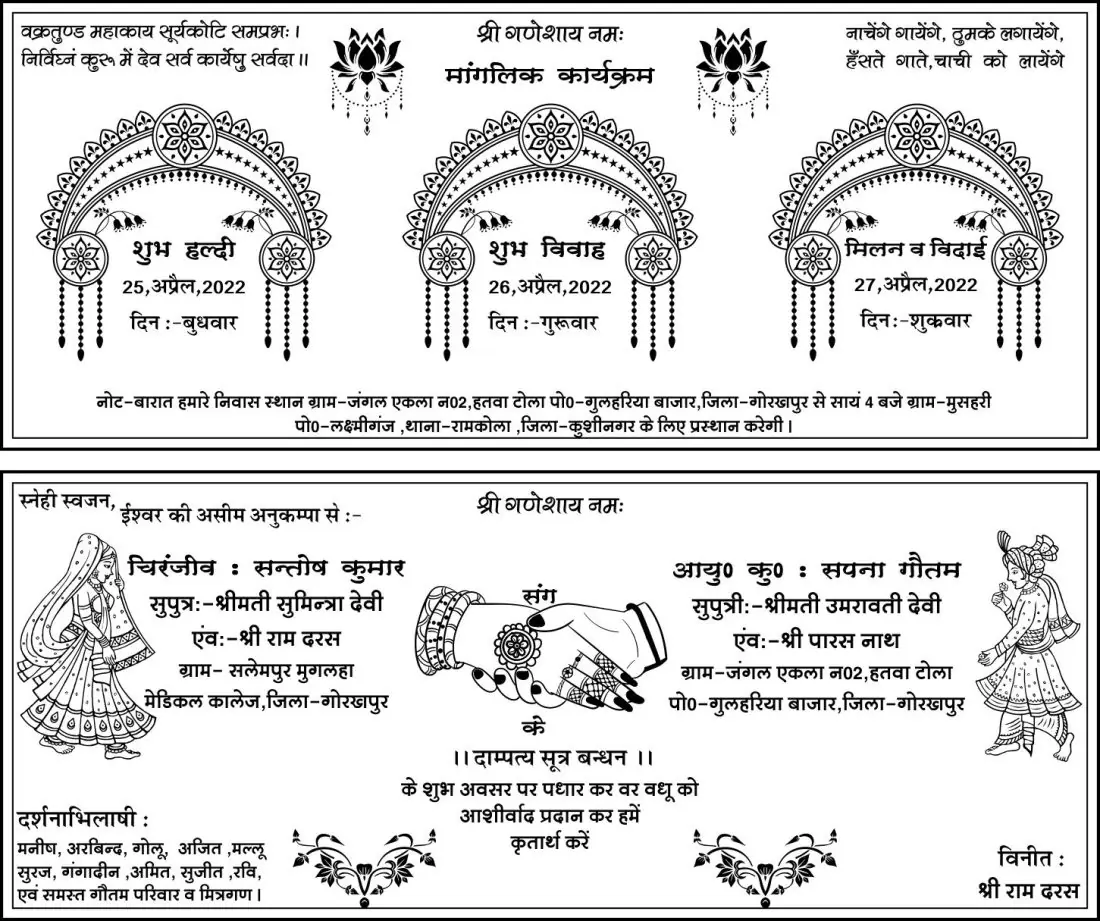 वक्रतुण्ड महाकाय सूर्यकोटि समप्रभः।
निर्विघ्नं कुरू में देव सर्व कार्येषु सर्वदा॥
श्री गणेशाय नमः
मांगलिक कार्यक्रम
नाचेंगे गायेंगे, ठुमके लगायेंगे,
हँसते गाते,चाची को लायेंगे
शुभ हल्दी
25,अप्रैल,2022
दिन :-बुधवार
शुभ विवाह
26,अप्रैल,2022
दिन :-गुरूवार
मिलन व विदाई
27,अप्रैल,2022
दिन:-शुक्रवार
नोट-बारात हमारे निवास स्थान ग्राम-जंगल एकला न02,हतवा टोला पो0-गुलहरिया बाजार,जिला-गोरखपुर से सायं 4 बजे ग्राम-मुसहरी
पो0-लक्ष्मीगंज ,थाना-रामकोला ,जिला-कुशीनगर के लिए प्रस्थान करेगी।
स्नेही स्वजन,
ईश्वर की असीम अनुकम्पा से :-
श्री गणेशाय नमः
चिरंजीव : सन्तोष कुमार
सुपुत्र:-श्रीमती सुमिन्त्रा देवी
एंव:-श्री राम दरस
ग्राम- सलेमपुर मुगलहा
मेडिकल कालेज,जिला-गोरखपुर
संग
आयु0 कु0 : सपना गौतम
सुपुत्री:-श्रीमती उमरावती देवी
एंव:-श्री पारस नाथ
ग्राम-जंगल एकला न02,हतवा टोला
पो0-गुलहरिया बाजार,जिला-गोरखपुर
के
॥दाम्पत्य सूत्र बन्धन ॥
के शुभ अवसर पर पधार कर वर वधू को
आशीर्वाद प्रदान कर हमें
कृतार्थ करें
दर्शनाभिलाषी :
मनीष, अरबिन्द, गोलू, अजित ,मल्लू
सुरज, गंगादीन ,अमित, सुजीत ,रवि,
एवं समस्त गौतम परिवार व मित्रगण।
विनीत :
श्री राम दरस